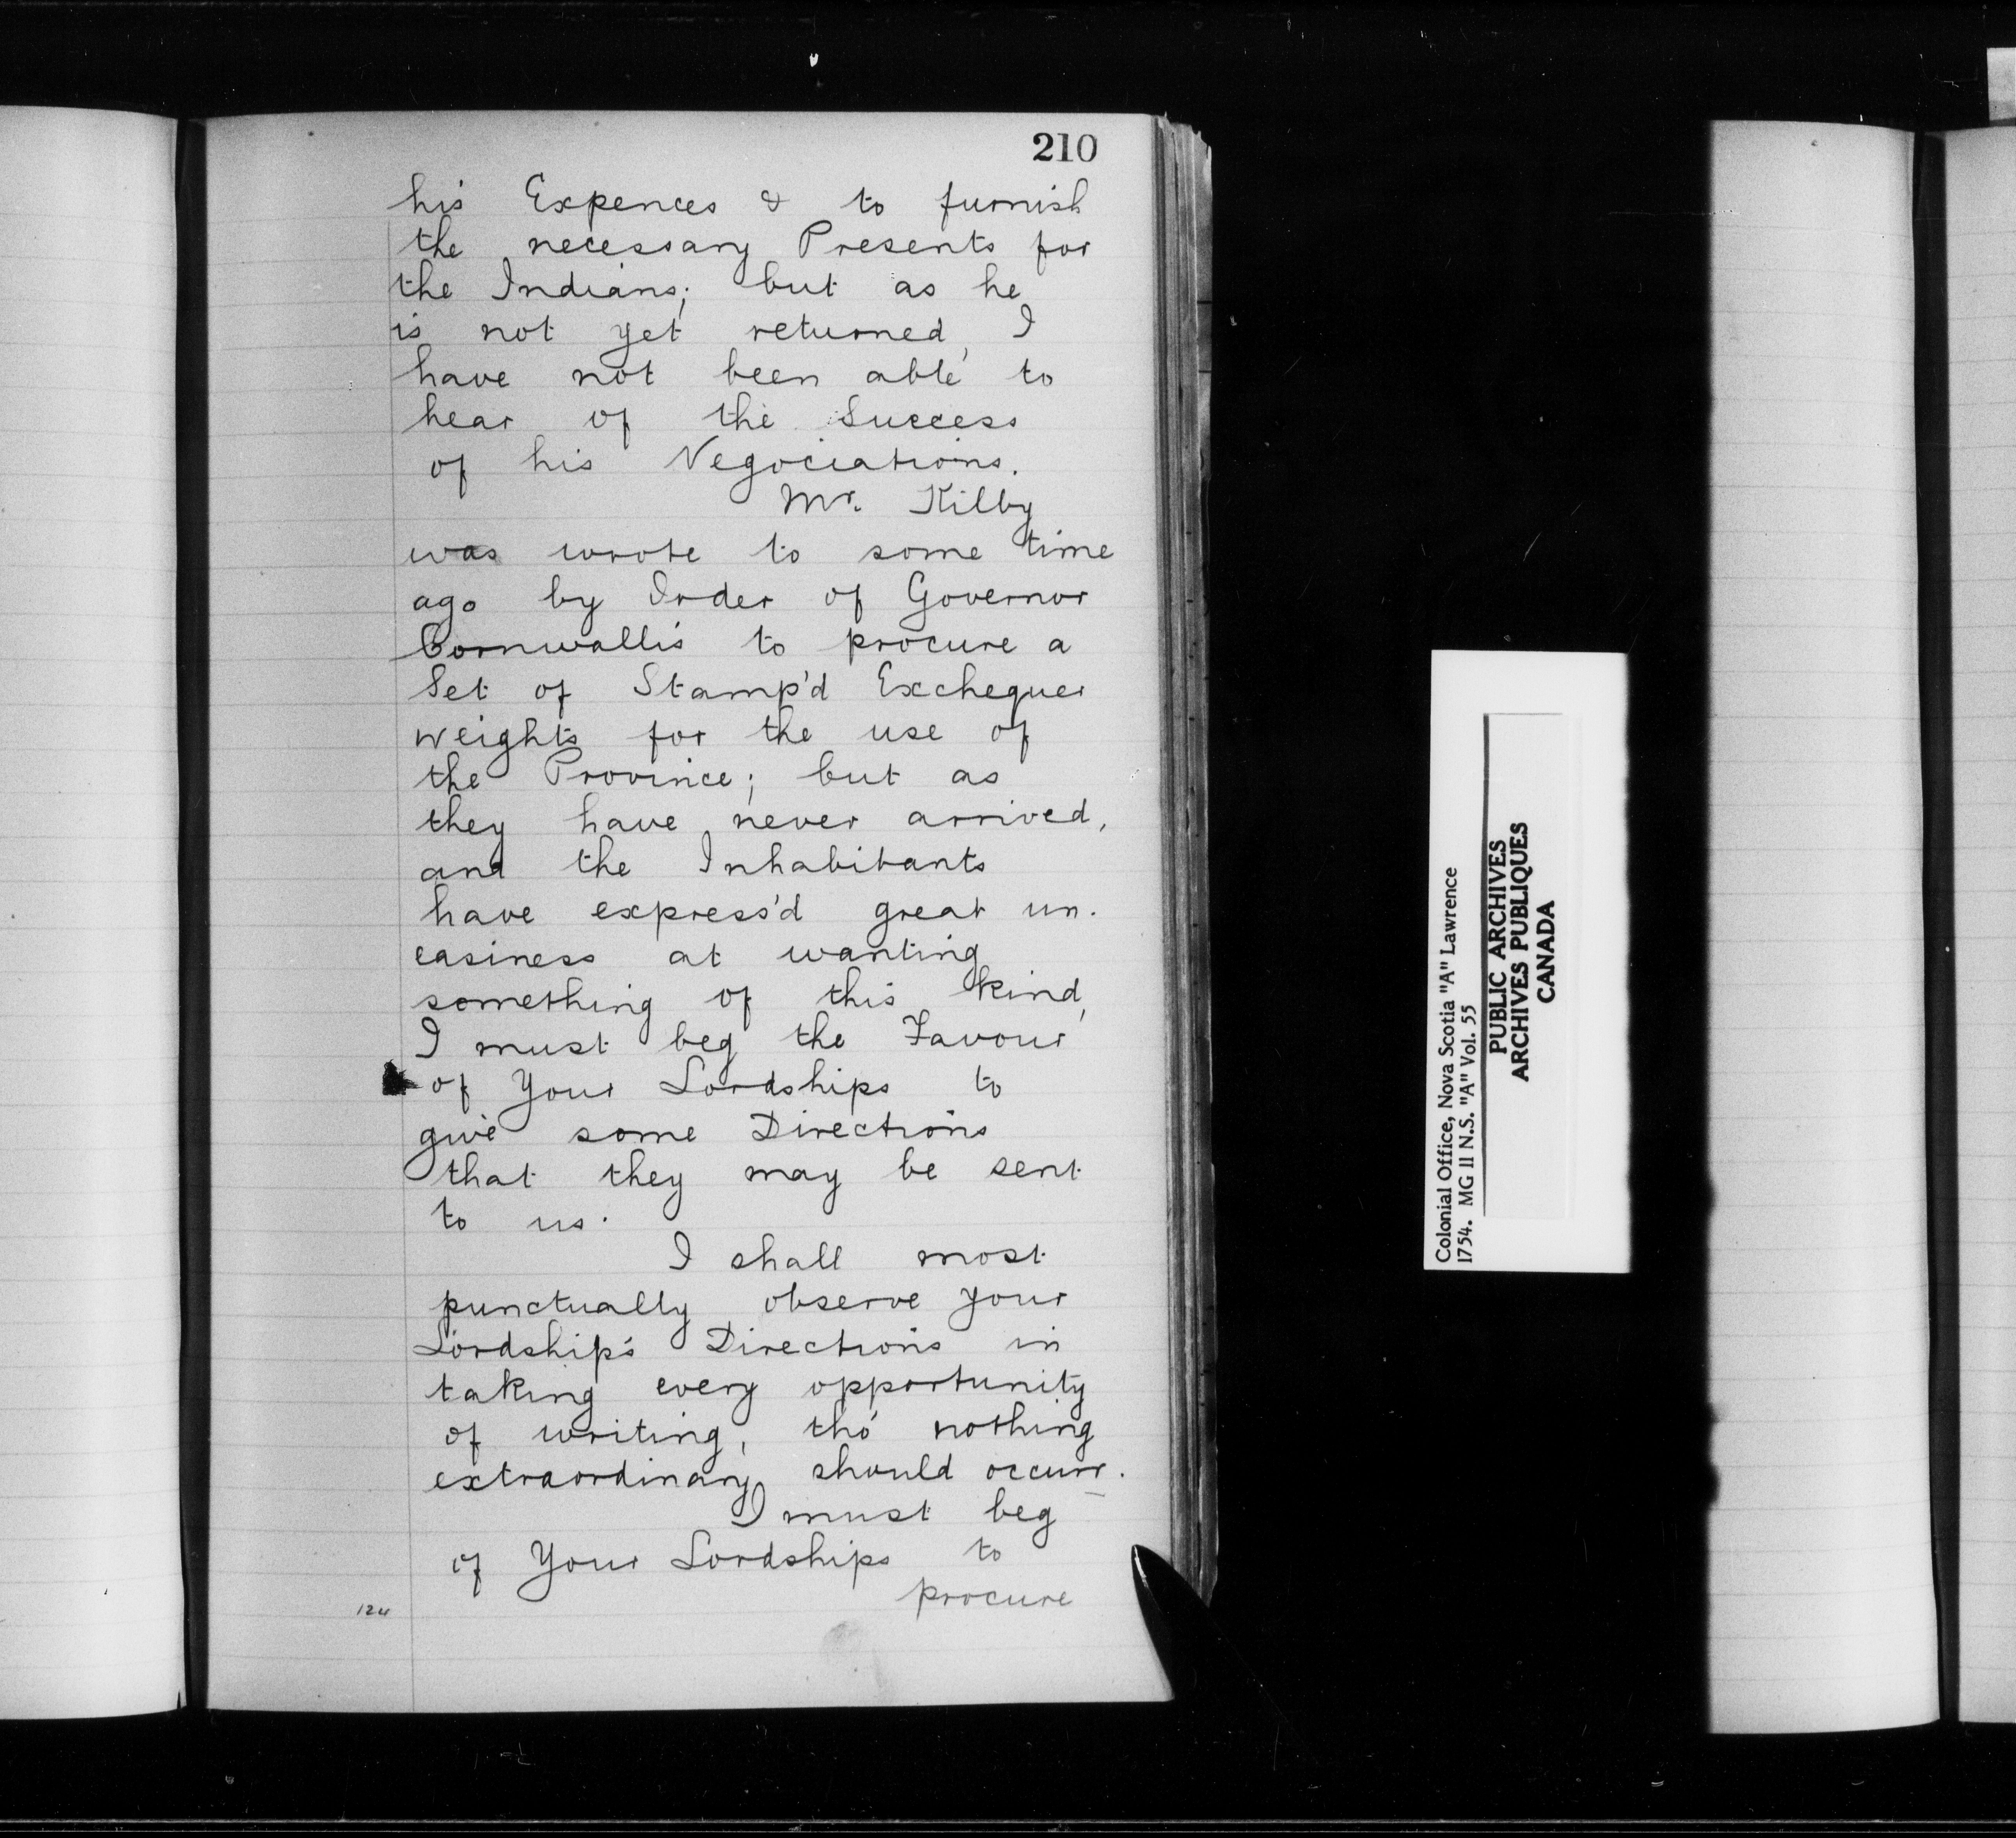 210
his Expences & to furnish
the necessary Presents for
the Indians; but as he
is not yet returned, I
have not been able to
hear of the Success
of his Negociations.
Mr. Kilby
was wrote to some time
ago by Order of Governor
Cornwallis to procure a
Set of Stamp'd Exchequer
weights for the use of
the Province; but as
they have never arrived,
and the Inhabitants
have express'd great un-
easiness at wanting
something of this kind,
I must beg the Favour
of Your Lordships to
give some Directions
that they may be sent
to us.
I shall most
punctually observe your
Lordship's Directions in
taking every opportunity
of writing, tho' nothing
extraordinary should occurr.
I must beg
of Your Lordships to
procure
124
Colonial Office, Nova Scotia "A" Lawrence
1754. MG 11 N.S. "A" Vol. 55
PUBLIC ARCHIVES
ARCHIVES PUBLIQUES
CANADA